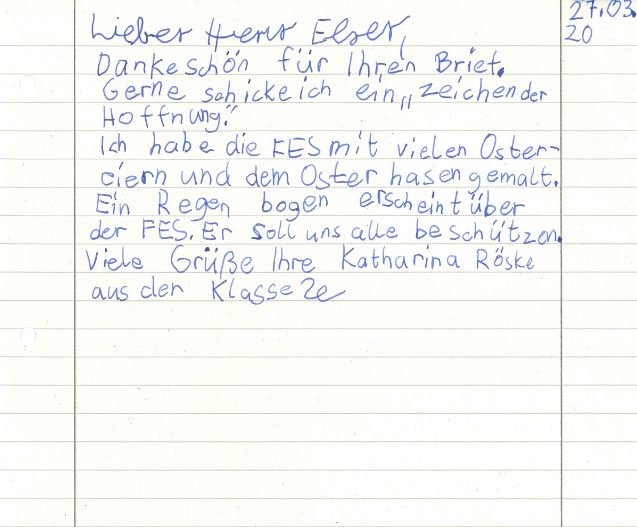 27.03.
20
Lieber Herr Elser,
Dankeschön für Ihren Brief.
Gerne schicke ich ein „zeichen der
Hoffnung."
Ich habe die FES mit vielen Oster-
eiern und dem Oster hasen gemalt.
Ein Regen bogen erscheint über
der FES. Er soll uns alle beschützen.
Viele Grüße Ihre Katharina Röske
aus der Klasse 2e